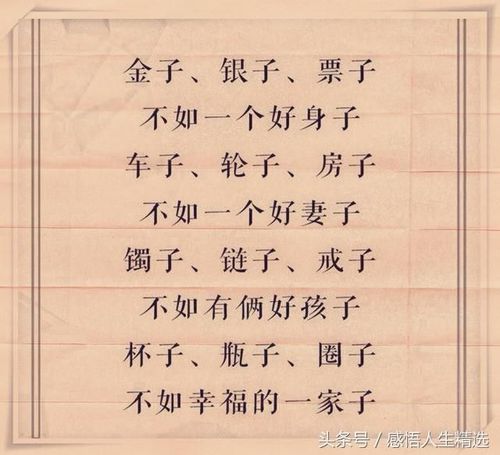 金子、银子、票子
不如一个好身子
车子、轮子、房子
不如一个好妻子
镯子、链子、戒子
不如有俩好孩子
杯子、瓶子、圈子
不如幸福的一家子
头条号 / 感悟人生精选